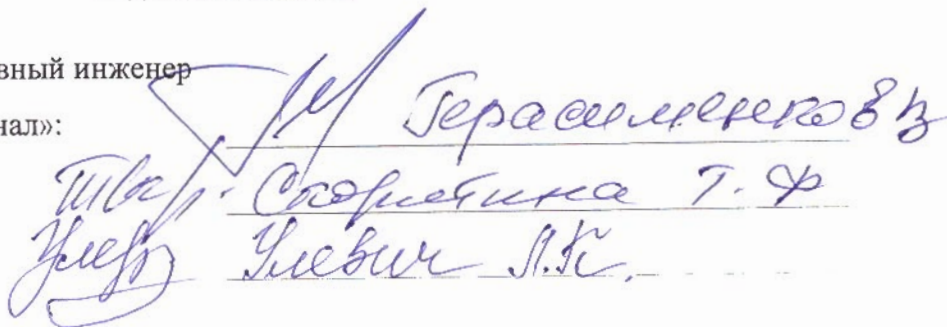 вный инженер
нал»: Герасименков В
Скорятина Т. Ф
Улевич Л.К.